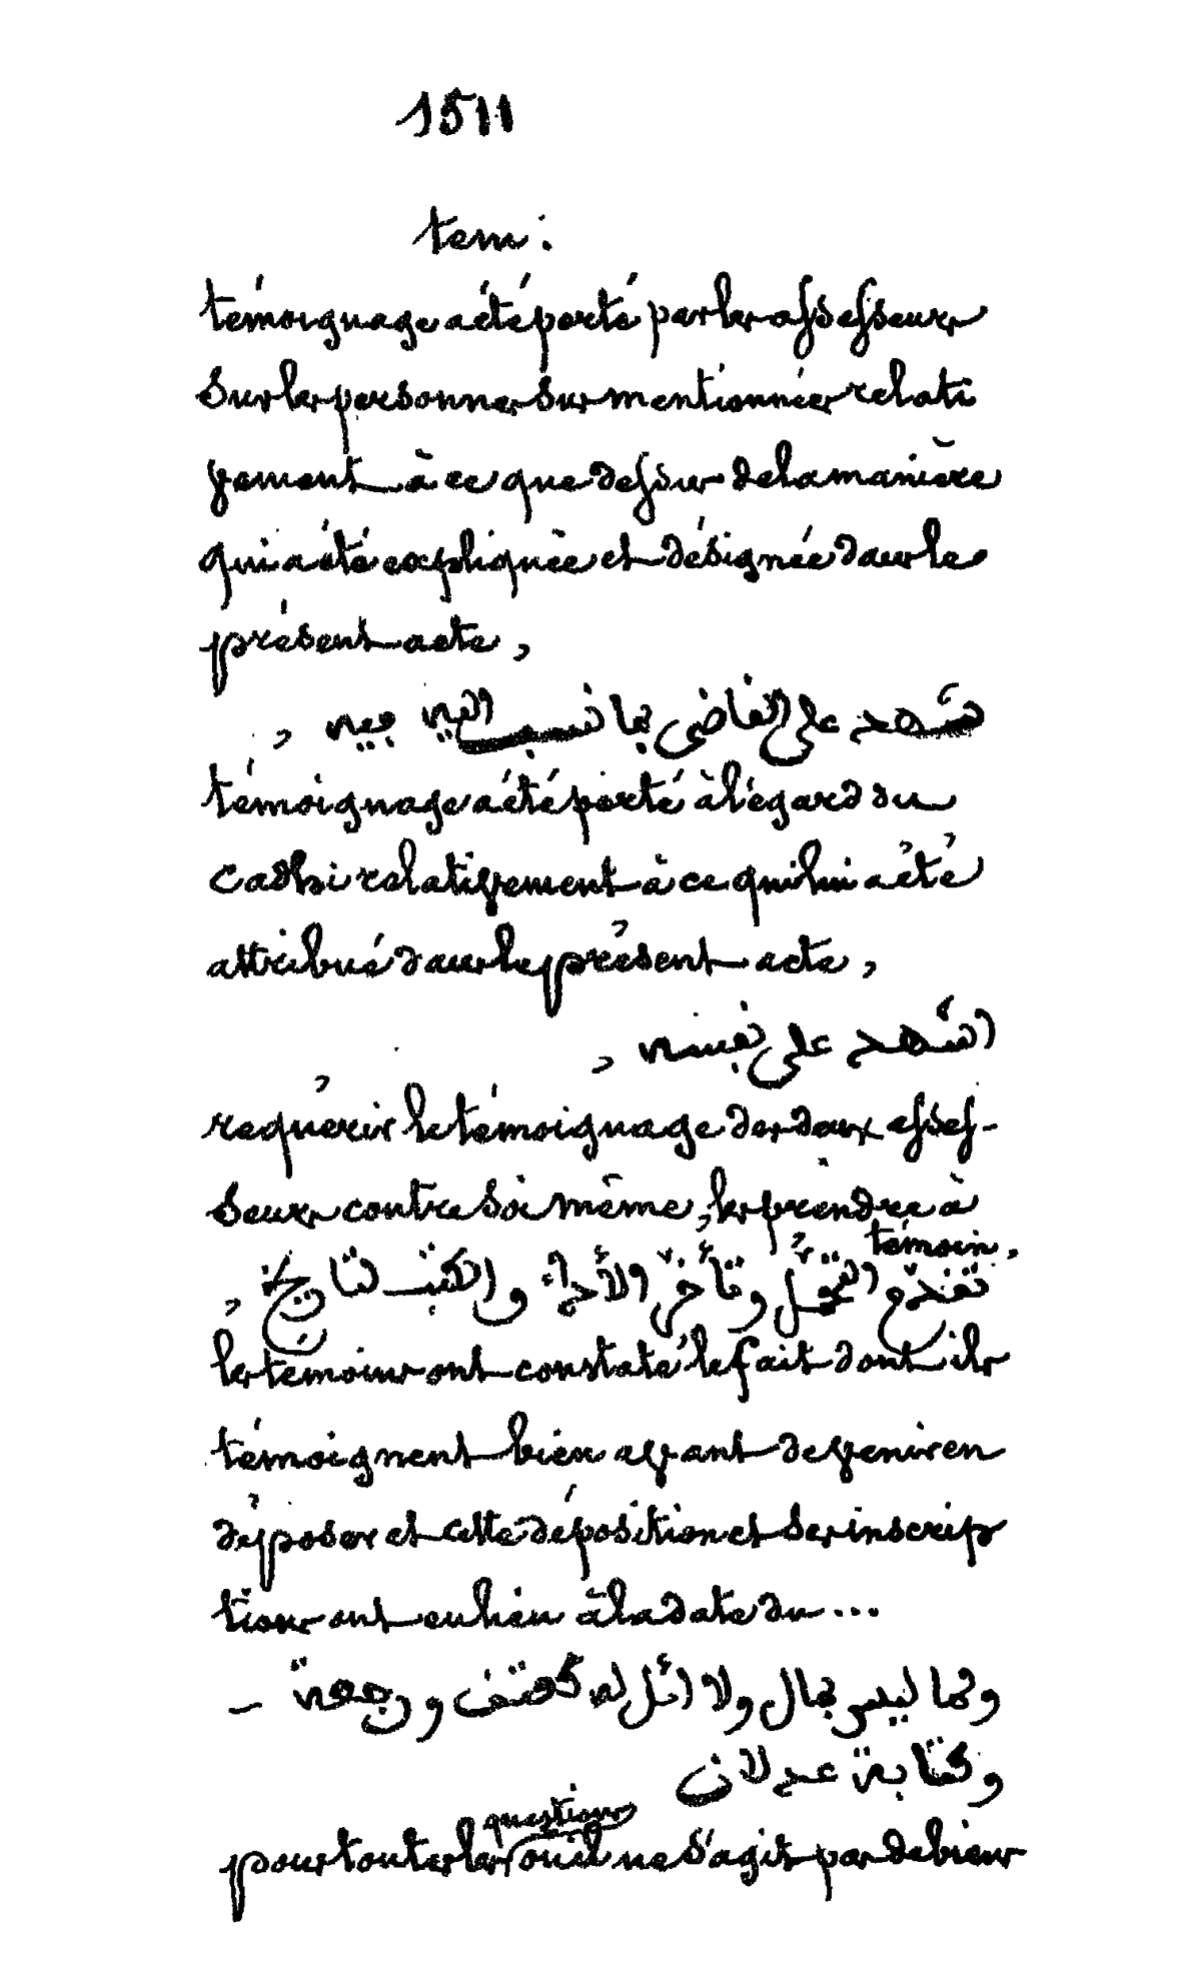 1511
tem :
témoignage a été porté par les assesseurs
sur les personnes sus mentionnées relati
vement à ce que dessus de la manière
qui a été expliquée et désignée dans le
présent acte ,
شهد على القاضى بما نسب اليه فيه ,
témoignage a été porté à l'égard du
Cadhi relativement à ce qui lui a été
attribué dans le présent acte ,
اشهد على نفسه ,
requérir le témoignage des deux asses-
seurs contre soi même , les prendre à
témoin ,
تقدّم التحمّل وتأخّر الأداء والكتب لتاريخ ,
les témoins ont constaté le fait dont ils
témoignent bien avant de venir en
déposer et cette déposition et ses inscrip
tions ont eu lieu à la date du ...
ولما ليس بمال ولا آئل له كعتق ورجعة –
وكتابة عدلان
pour toutes les questions où il ne s'agit pas de biens